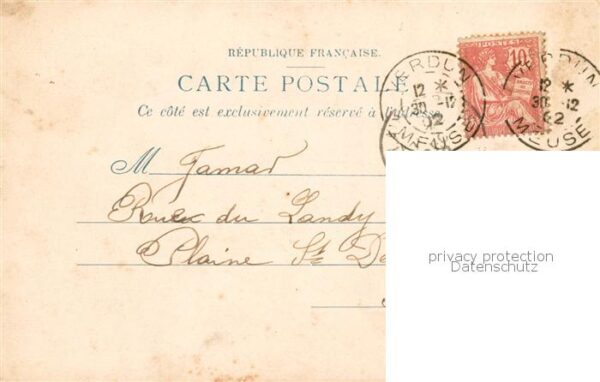 RÉPUBLIQUE FRANÇAISE.
CARTE POSTALE
Ce côté est exclusivement réservé à l'adresse
POSTES
10
VERDUN
12 *
30 -12
02
MEUSE
VERDUN
12 *
30 -12
02
MEUSE
M Jamar
du Landy
Plaine St D
privacy protection
Datenschutz